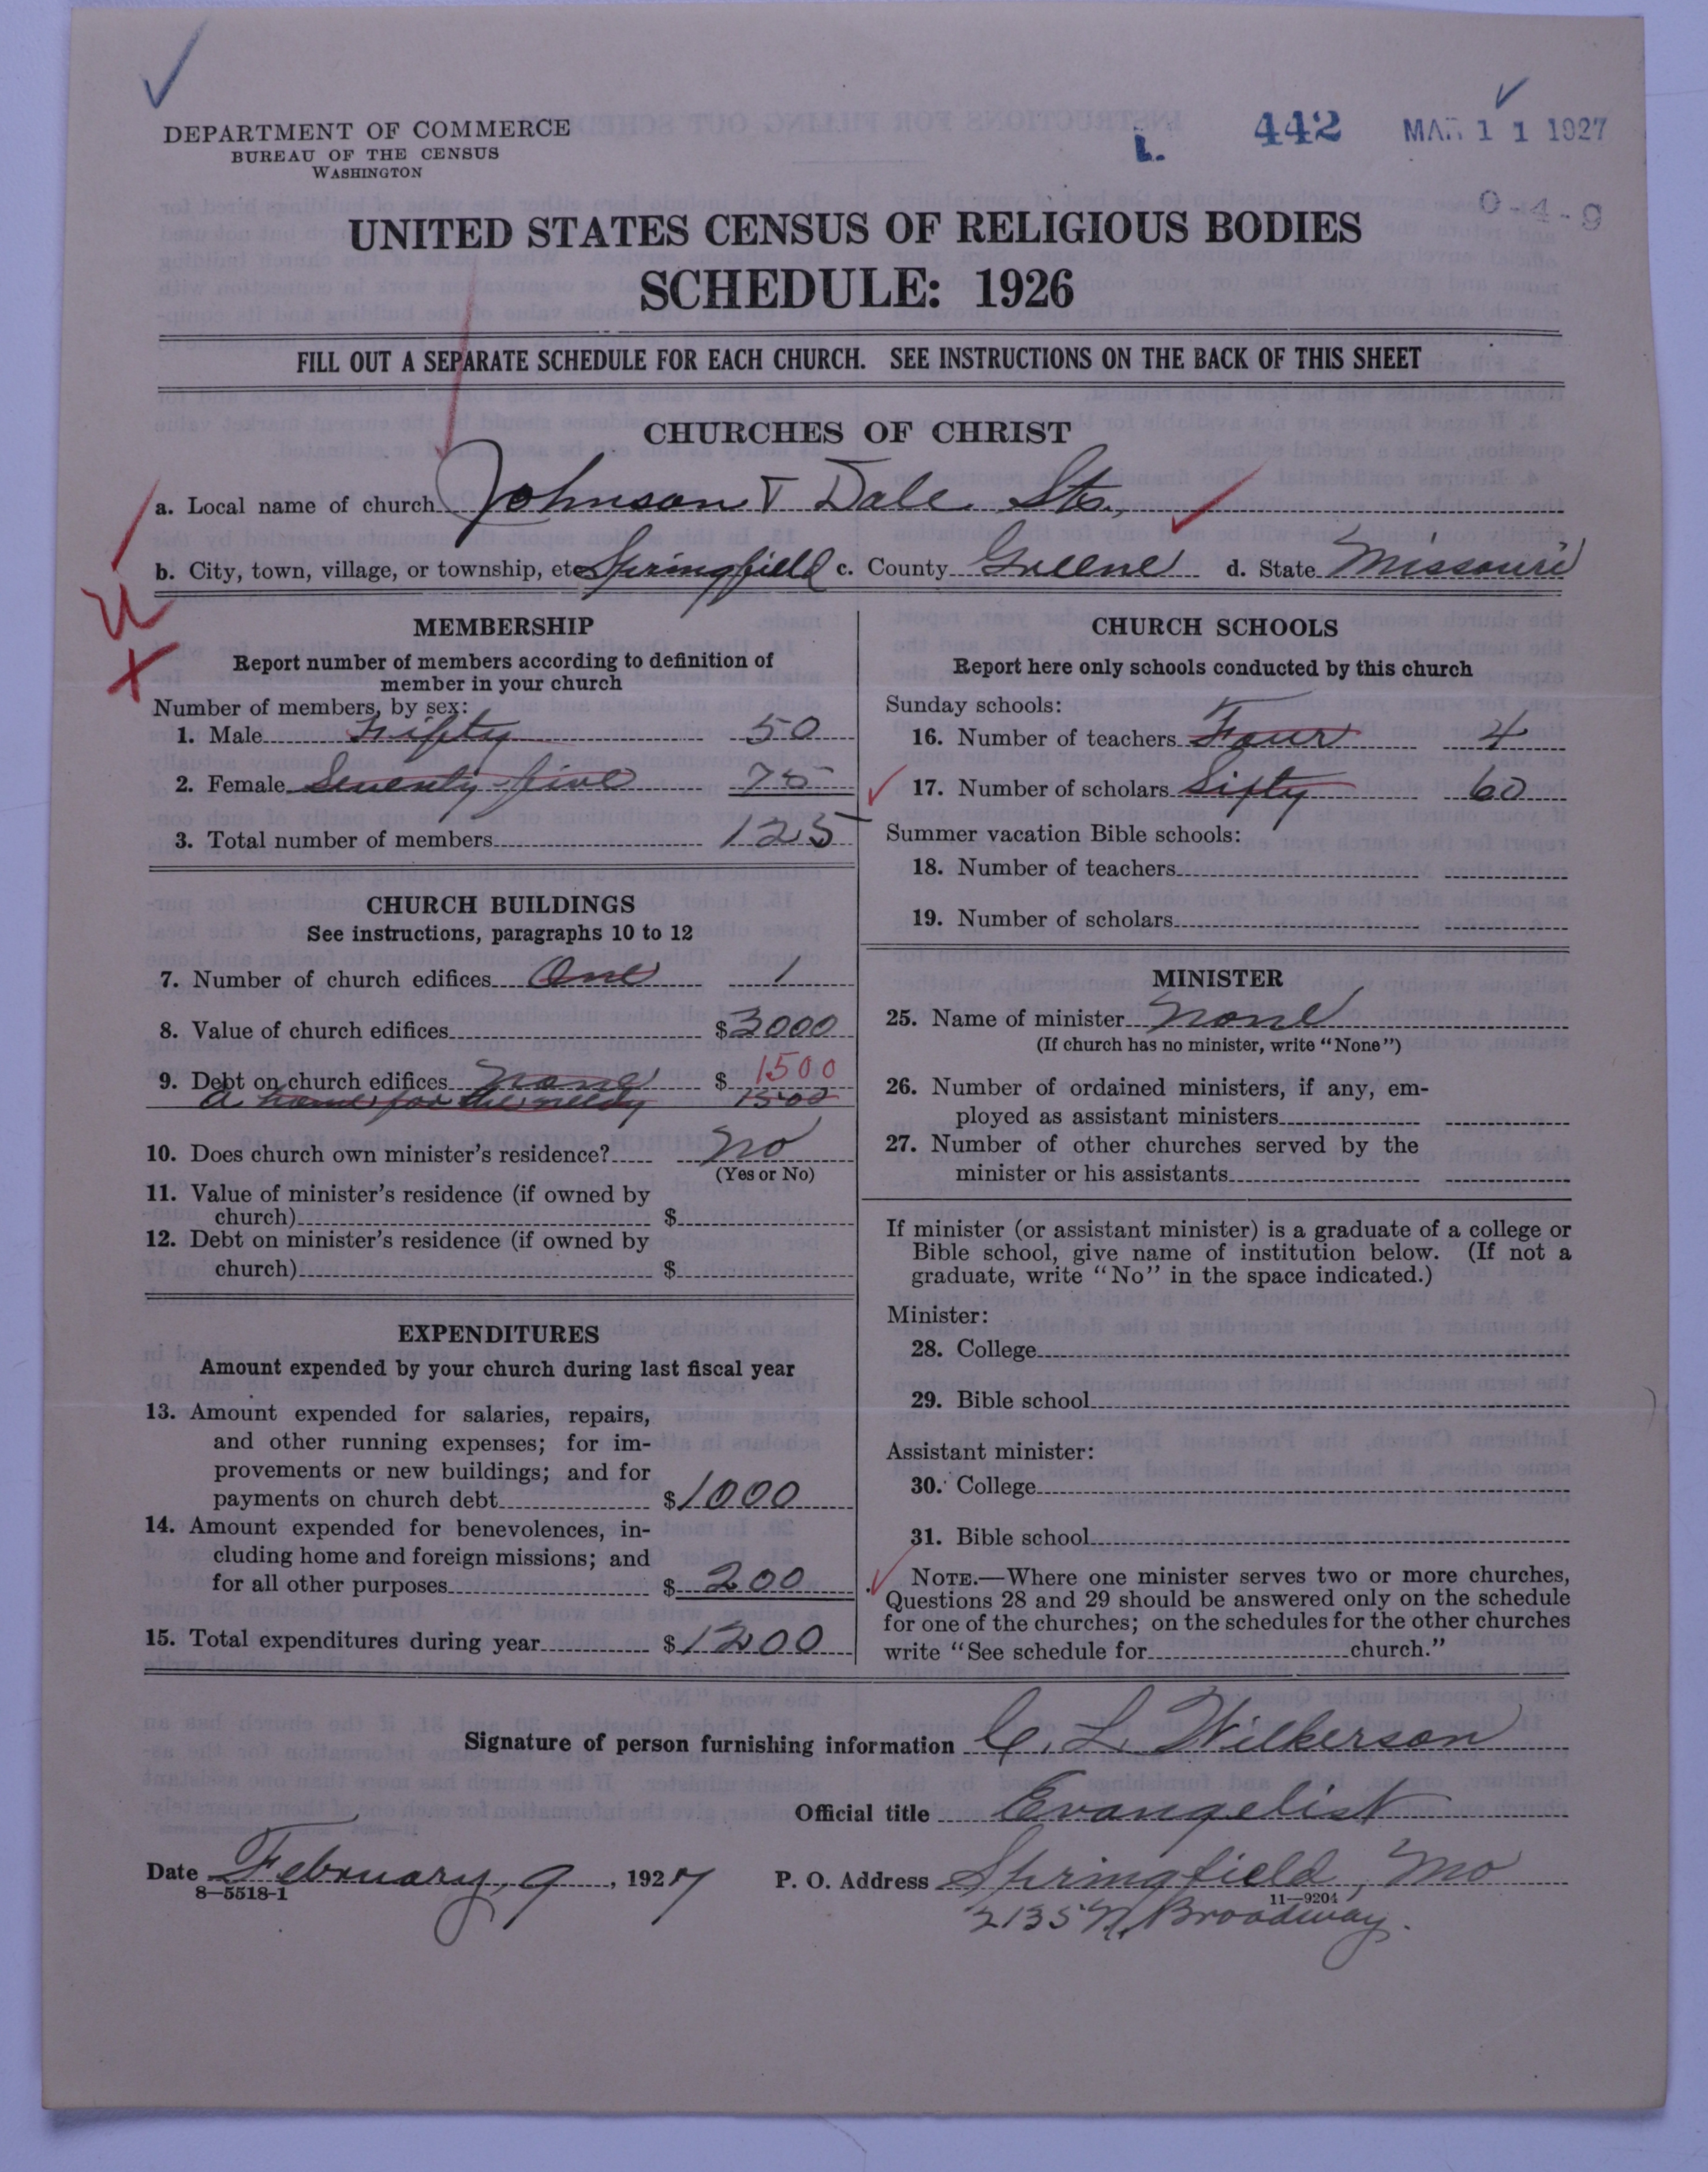 DEPARTMENT OF COMMERCE
BUREAU OF THE CENSUS
WASHINGTON
442
MAR 11 1927
0-4-9
UNITED STATES CENSUS OF RELIGIOUS BODIES
SCHEDULE: 1926
FILL OUT A SEPARATE SCHEDULE FOR EACH CHURCH. SEE INSTRUCTIONS ON THE BACK OF THIS SHEET
CHURCHES OF CHRIST
a. Local name of church Johnson & Dale Sts.,
b. City, town, village, or township, etc Springfield c. County Greene d. State Missouri
MEMBERSHIP
Report number of members according to definition of
member in your church
Number of members, by sex:
1. Male Fifty 50
2. Female Seventy-five 75
3. Total number of members 125
CHURCH BUILDINGS
See instructions, paragraphs 10 to 12
7. Number of church edifices One 1
8. Value of church edifices $3000
9. Debt on church edifices none $ 1500
a home for the needy 1500
10. Does church own minister's residence? no
(Yes or No)
11. Value of minister's residence (if owned by
church) $
12. Debt on minister's residence (if owned by
church) $
EXPENDITURES
Amount expended by your church during last fiscal year
13. Amount expended for salaries, repairs,
and other running expenses; for im-
provements or new buildings; and for
payments on church debt $1000
14. Amount expended for benevolences, in-
cluding home and foreign missions; and
for all other purposes $ 200
15. Total expenditures during year $1200
CHURCH SCHOOLS
Report here only schools conducted by this church
Sunday schools:
16. Number of teachers Four 4
17. Number of scholars Sifty 60
Summer vacation Bible schools:
18. Number of teachers
19. Number of scholars
MINISTER
25. Name of minister none
(If church has no minister, write "None")
26. Number of ordained ministers, if any, em-
ployed as assistant ministers
27. Number of other churches served by the
minister or his assistants
If minister (or assistant minister) is a graduate of a college or
Bible school, give name of institution below. (If not a
graduate, write "No" in the space indicated.)
Minister:
28. College
29. Bible school
Assistant minister:
30. College
31. Bible school
NOTE.—Where one minister serves two or more churches,
Questions 28 and 29 should be answered only on the schedule
for one of the churches; on the schedules for the other churches
write "See schedule for church."
Signature of person furnishing information C. L. Wilkerson
Official title Evangelist
Date February, 9, 1927 P. O. Address Springfield, Mo
8—5518-1 11—9204
2135 N. Broadway.